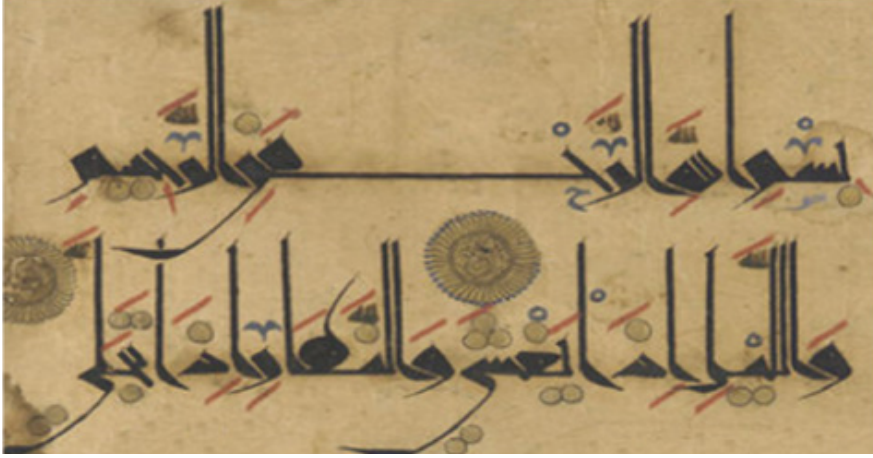 بسم الله الرحمن الرحيم
والليل اذا يغشى والنهار اذا تجلى